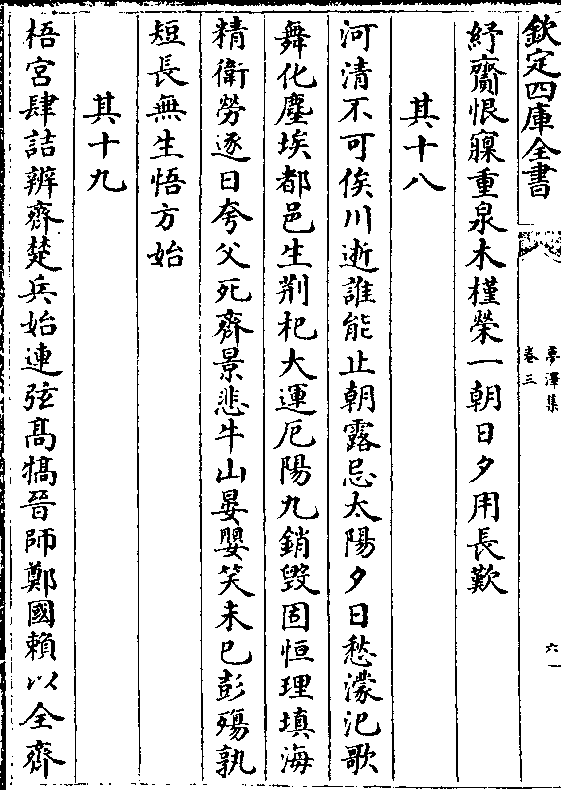 欽定四庫全書
夢澤集
卷三
六
紓齎恨寢重泉木槿榮一朝日夕用長歎
其十八
河清不可俟川逝誰能止朝露忌太陽夕日愁濛汜歌
舞化塵埃都邑生荆杞大運厄陽九銷毀固恒理填海
精衛勞逐日夸父死齊景悲牛山晏嬰笑未已彭殤孰
短長無生悟方始
其十九
梧宮肆詰辨齊楚兵始連弦髙犒晉師鄭國賴以全齊